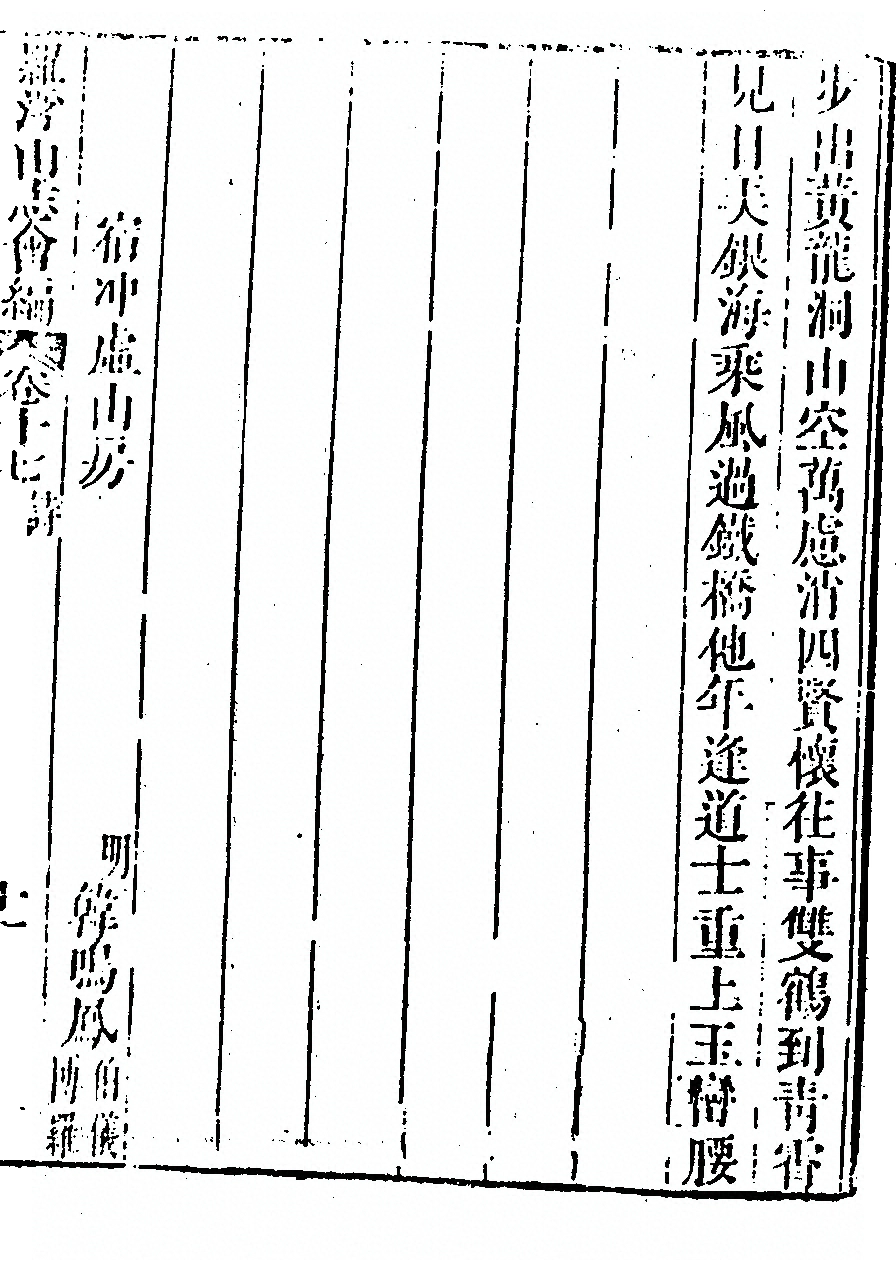 步出黃龍洞山空萬慮消四賢懷往事雙鶴到青霄
見日天銀海乘風過鐵橋他年逢道士重上玉巒腰
宿冲虛山房
明韓鳴鳳
伯儀
博羅
羅浮山志會編
卷十七
詩
七